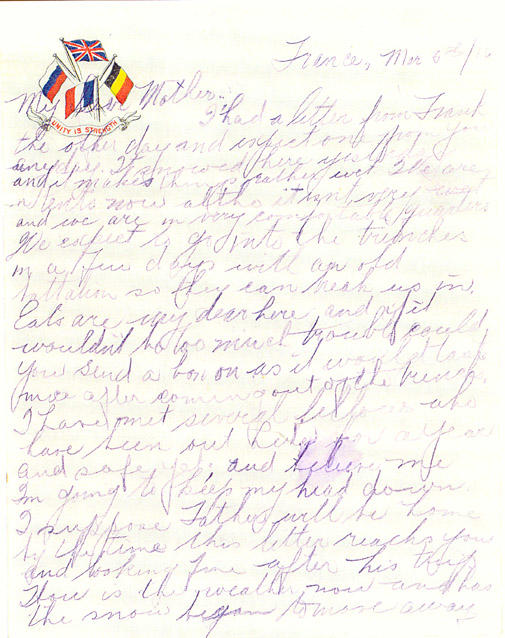 UNITY IS STRENGTH
France, Mar 6th/16
My Dear Mother:-
I had a letter from Frank
the other day and expect one from you
any day. It snowed here yesterday
and it makes things rather wet. We are
in tents now altho it isnt very
and we are in very comfortable quarters
We expect to go into the trenches
in a few days with an old
battalion so they can break us in.
Eats are very dear here and if it
wouldn't be too much trouble could
you send a box on as it would taste
nice after coming out of the trenches.
I have met several fellows who
have been out here for a year
and safe yet, and believe me
Im going to keep my head down.
I suppose Father will be home
by the time this letter reaches you
and looking fine after his trip
How is the weather now and has
the snow began to move away